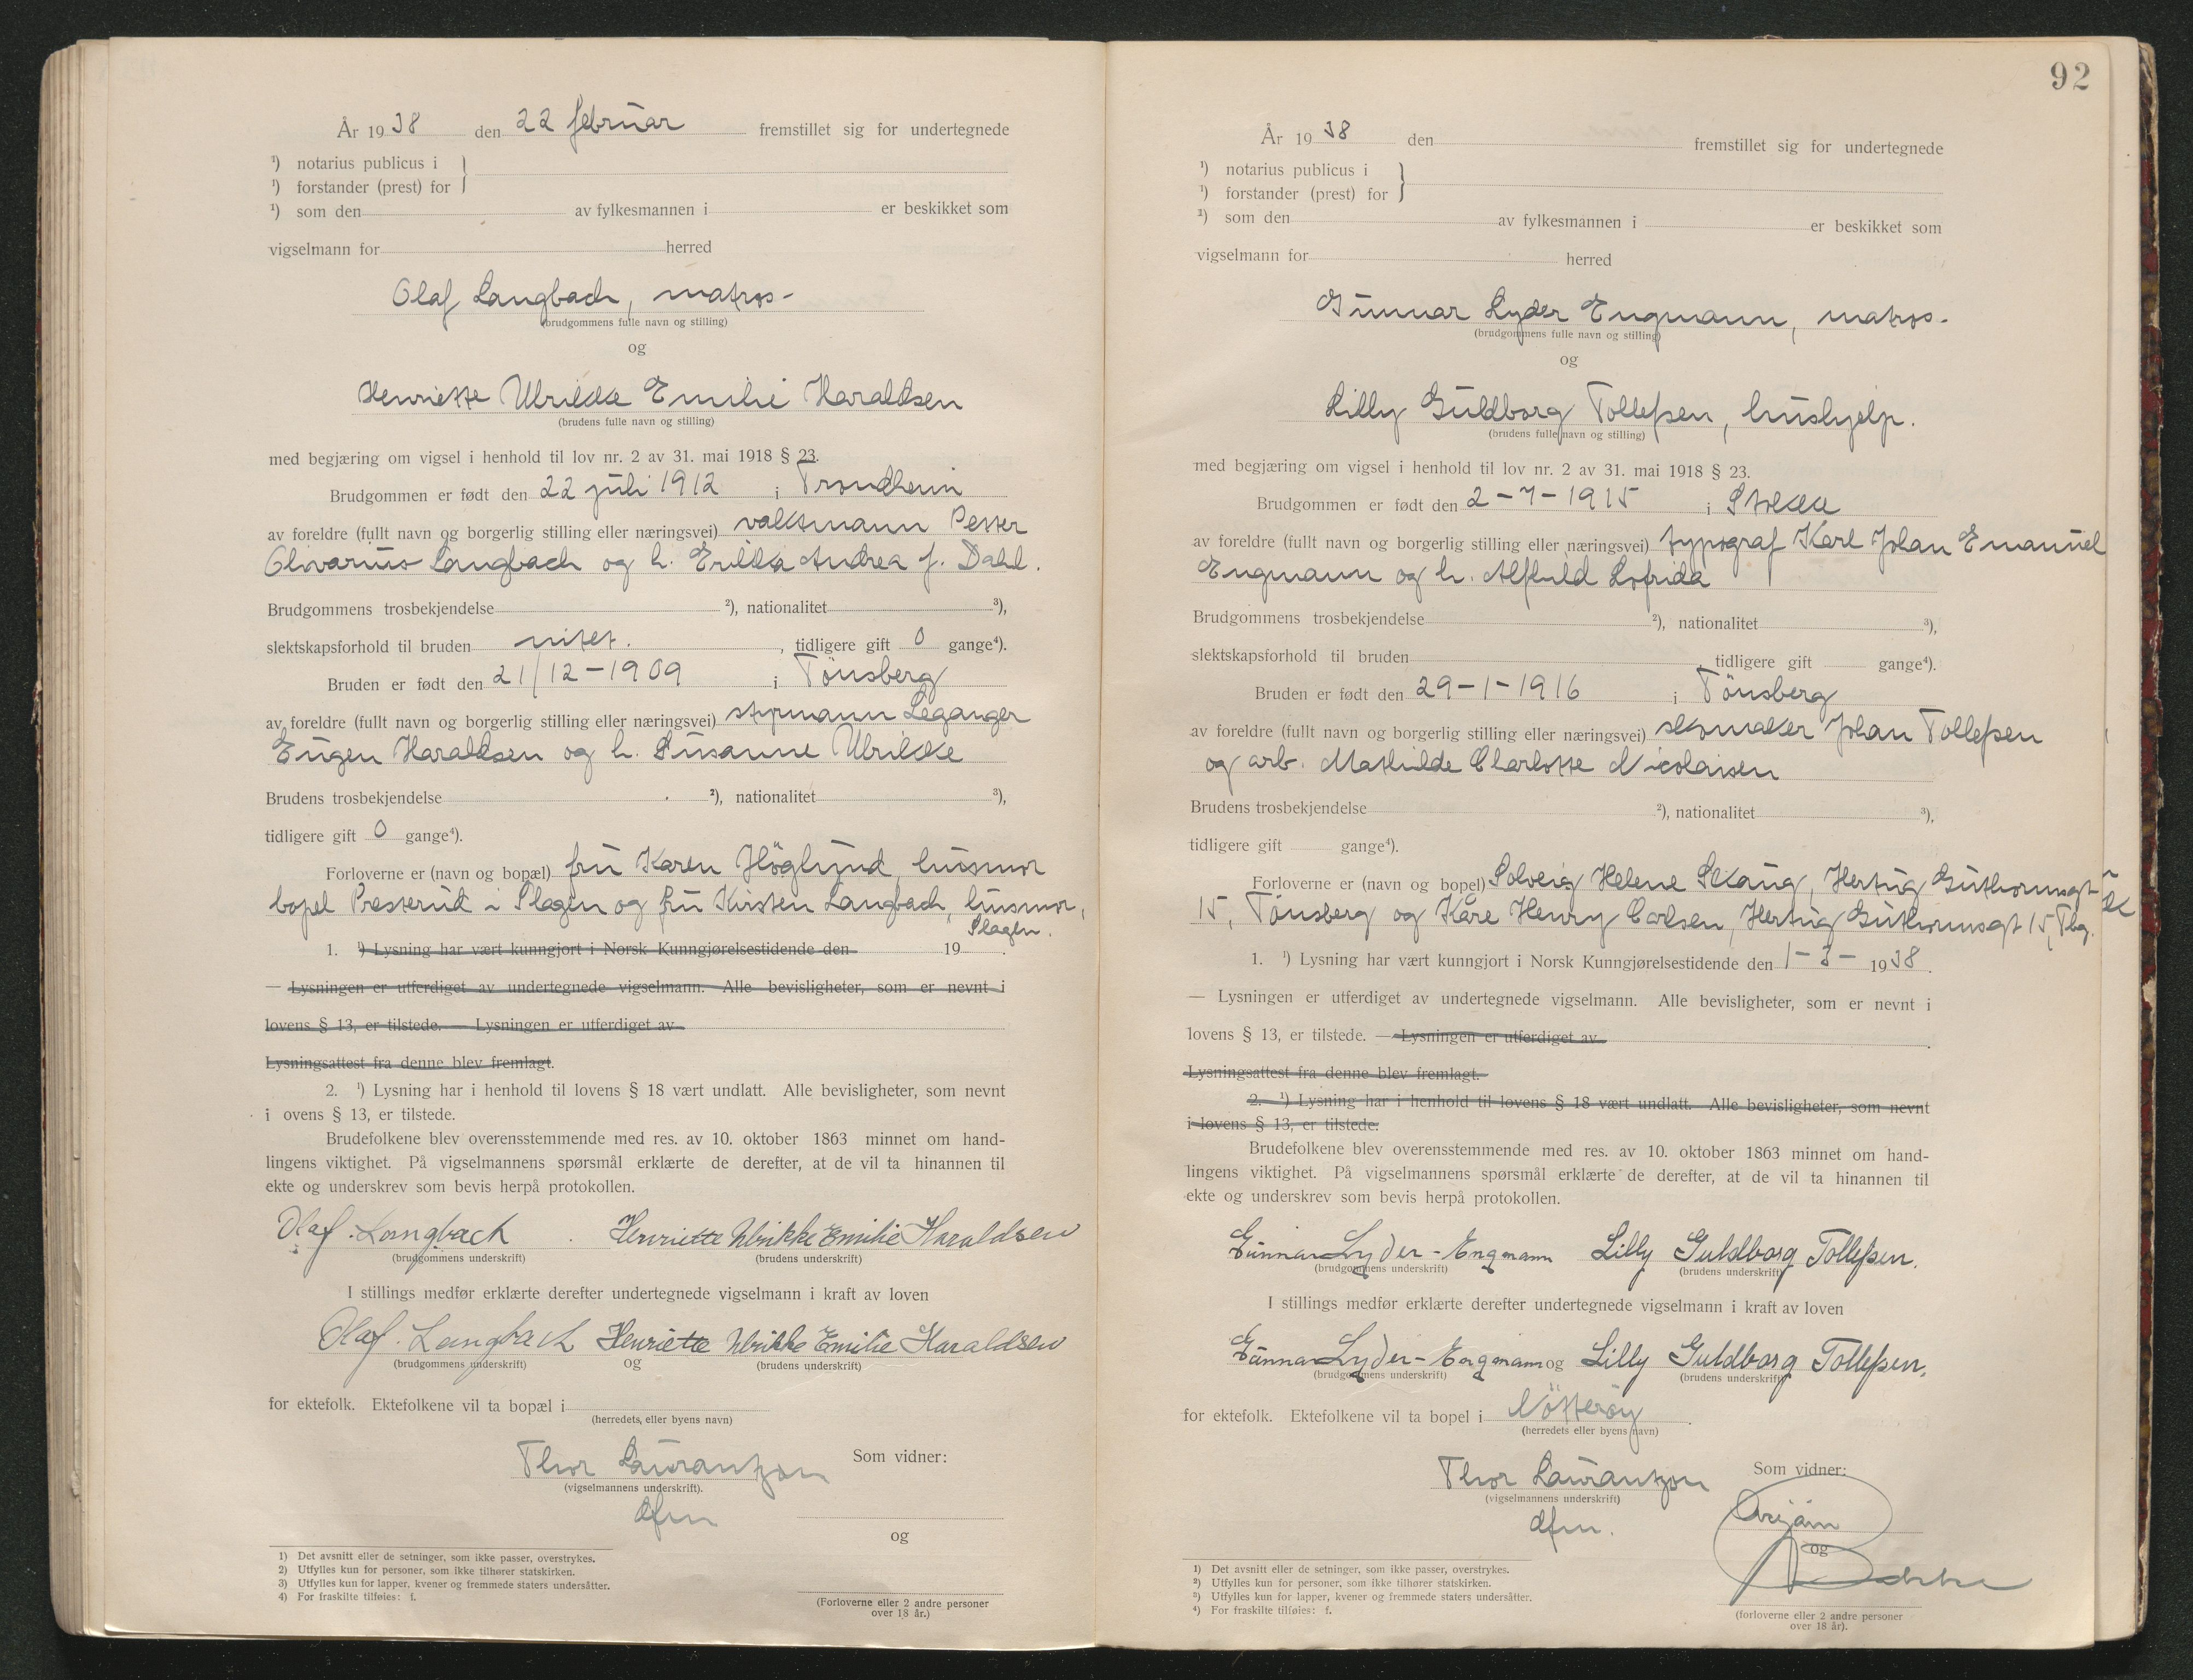 År 1938 den 22 februar fremstillet sig for undertegnede
¹) notarius publicus i }
¹) forstander (prest) for
¹) som den av fylkesmannen i er beskikket som
vigselmann for herred
Olaf Langbach, matros-
(brudgommens fulle navn og stilling)
og
Henriette Ulrikke Emilie Haraldsen
(brudens fulle navn og stilling)
med begjæring om vigsel i henhold til lov nr. 2 av 31. mai 1918 § 23.
Brudgommen er født den 22 juli 1912 i Trondheim
av foreldre (fullt navn og borgerlig stilling eller næringsvei) vaktmann Petter
Olivarius Langbach og h. Erikka Andrea f. Dahl.
Brudgommens trosbekjendelse ²), nationalitet ³),
slektskapsforhold til bruden intet. , tidligere gift 0 gange⁴).
Bruden er født den 21/12-1909 i Tönsberg
av foreldre (fullt navn og borgerlig stilling eller næringsvei) styrmann Leganger
Eugen Haraldsen og h. Susanne Ulrikke
Brudens trosbekjendelse ²), nationalitet ³),
tidligere gift 0 gange⁴).
Forloverne er (navn og bopæl) fru Karen Höglund, husmor
bopel Presterud i Slagen og fru Kirsten Langbach, husmor,
Slagen.
1. ¹) Lysning har vært kunngjort i Norsk Kunngjørelsestidende den 19 .
— Lysningen er utferdiget av undertegnede vigselmann. Alle bevisligheter, som er nevnt i
lovens § 13, er tilstede. — Lysningen er utferdiget av
Lysningsattest fra denne blev fremlagt.
2. ¹) Lysning har i henhold til lovens § 18 vært undlatt. Alle bevisligheter, som nevnt
i ovens § 13, er tilstede.
Brudefolkene blev overensstemmende med res. av 10. oktober 1863 minnet om hand-
lingens viktighet. På vigselmannens spørsmål erklærte de derefter, at de vil ta hinannen til
ekte og underskrev som bevis herpå protokollen.
Olaf Langbach Henriette Ulrikke Emilie Haraldsen
(brudgommens underskrift) (brudens underskrift)
I stillings medfør erklærte derefter undertegnede vigselmann i kraft av loven
Olaf Langbach Henriette Ulrikke Emilie Haraldsen
(brudgommens underskrift) og (brudens underskrift)
for ektefolk. Ektefolkene vil ta bopæl i
(herredets, eller byens navn)
Thor Laurantzon Som vidner:
(vigselmannens underskrift).
dfm
og
1) Det avsnitt eller de setninger, som ikke passer, overstrykes.
2) Utfylles kun for personer, som ikke tilhører statskirken.
3) Utfylles kun for lapper, kvener og fremmede staters undersåtter.
4) For fraskilte tilføies: f.
(Forloverne eller 2 andre personer
over 18 år.)
92
År 1938 den fremstillet sig for undertegnede
¹) notarius publicus i }
¹) forstander (prest) for
¹) som den av fylkesmannen i er beskikket som
vigselmann for herred
Gunnar Lyder Engmann, matros-
(brudgommens fulle navn og stilling)
og
Lilly Guldborg Tollefsen, hushjelp.
(brudens fulle navn og stilling)
med begjæring om vigsel i henhold til lov nr. 2 av 31. mai 1918 § 23.
Brudgommen er født den 2-7-1915 i Stokke
av foreldre (fullt navn og borgerlig stilling eller næringsvei) typograf Karl Johan Emanuel
Engmann og h. Alfhild Lofrida
Brudgommens trosbekjendelse ²), nationalitet ³),
slektskapsforhold til bruden , tidligere gift gange⁴).
Bruden er født den 29-1-1916 i Tönsberg
av foreldre (fullt navn og borgerlig stilling eller næringsvei) skomaker Johan Tollefsen
og arb. Mathilde Charlotte Nicolaisen
Brudens trosbekjendelse ²), nationalitet ³),
tidligere gift gange⁴).
Forloverne er (navn og bopel) Solveig Helene Skaug, Hertug Guthormsgt
15, Tönsberg og Kåre Henry Carlsen, Hertug Guthormsgt 15, Tbg.
1. ¹) Lysning har vært kunngjort i Norsk Kunngjørelsestidende den 1-3- 1938.
— Lysningen er utferdiget av undertegnede vigselmann. Alle bevisligheter, som er nevnt i
lovens § 13, er tilstede. — Lysningen er utferdiget av .
Lysningsattest fra denne blev fremlagt.
2. ¹) Lysning har i henhold til lovens § 18 vært undlatt. Alle bevisligheter, som nevnt
i lovens § 13, er tilstede.
Brudefolkene blev overensstemmende med res. av 10. oktober 1863 minnet om hand-
lingens viktighet. På vigselmannens spørsmål erklærte de derefter, at de vil ta hinannen til
ekte og underskrev som bevis herpå protokollen.
Gunnar Lyder-Engmann Lilly Guldborg Tollefsen.
(brudgommens underskrift) (brudens underskrift)
I stillings medfør erklærte derefter undertegnede vigselmann i kraft av loven
Gunnar Lyder-Engmann og Lilly Guldborg Tollefsen.
(brudgommens underskrift) (brudens underskrift)
for ektefolk. Ektefolkene vil ta bopel i Nötteröy .
(herredets eller byens navn)
Thor Laurantzon Som vidner:
(vigselmannens underskrift)
dfm.
og
1) Det avsnitt eller de setninger, som ikke passer, overstrykes.
²) Utfylles kun for personer, som ikke tilhører statskirken.
³) Utfylles kun for lapper, kvener og fremmede staters undersåtter.
⁴) For fraskilte tilføies: f.
(forloverne eller 2 andre personer
over 18 år).